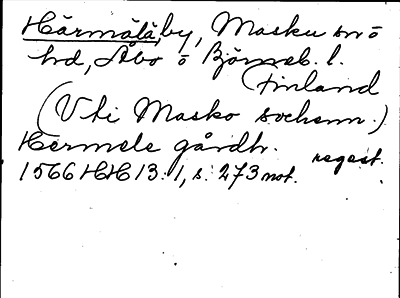 Härmälä, by, Masku sn o
hd, Åbo o Björneb. l.
(Finland
(Uti Masko sochenn.)
Hermele gårdh. regest.
1566 HH 13:1, s. 273 not.